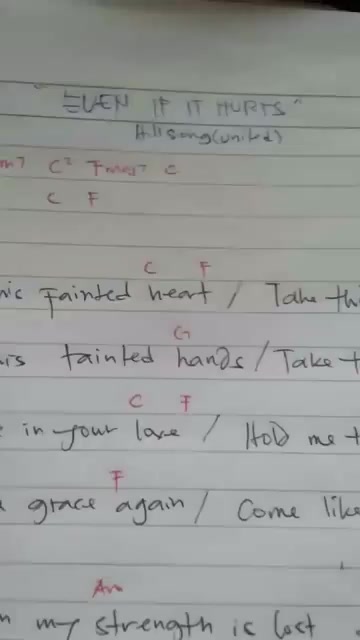 "EVEN IF IT HURTS"
Hillsong(united)
m7 C² Fmaj7 C
C F
C F
his Fainted heart / Take thi
G
is tainted hands / Take t
C F
in your love / Hold me t
F
grace again / Come like
Am
n my strength is lost